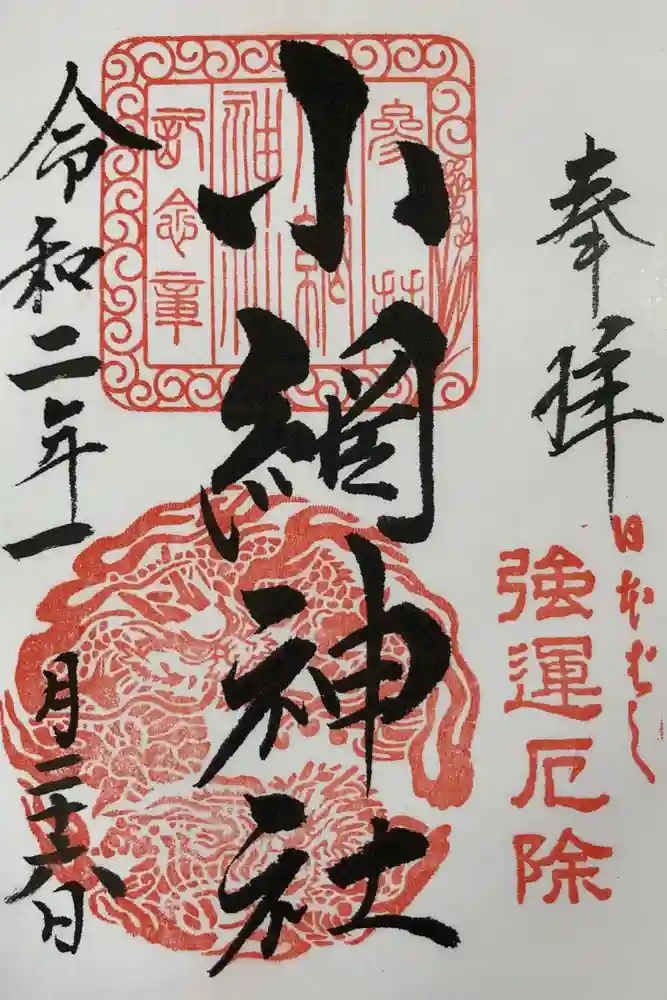 奉拝
日本ばし
強運厄除
小網神社
参拝
小網
神社
記念章
令和二年一
月二十六日